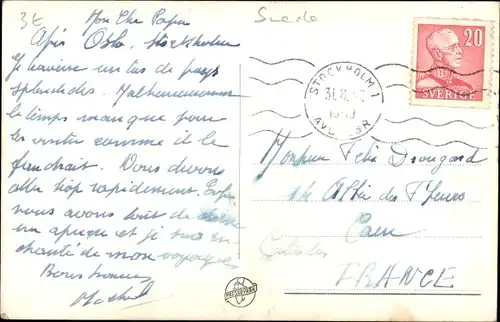 3€
Suède
Mon Cher Papa
Après Oslo, Stockholm
Je traverse un tas de pays
splendides. Malheureusement
le temps manque pour
les visiter comme il le
faudrait. Nous devons
aller trop rapidement. Enfin
nous avons tout de même
un aperçu et je suis en
chanté de mon voyage
Bons baisers
STOCKHOLM 1
AVG
20
SVERIGE
Monsieur Félix Drougard
des Fleurs
Caen
Calvados
FRANCE